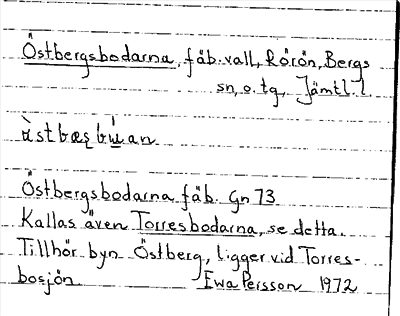 Östbergsbodarna, fäb.vall, Rörön, Bergs
sn, o. tg, Jämtl. l.
Östbergsbodarna fäb. Gn 73
Kallas även Torresbodarna, se detta.
Tillhör byn Östberg, ligger vid Torres-
bosjön Ewa Persson 1972